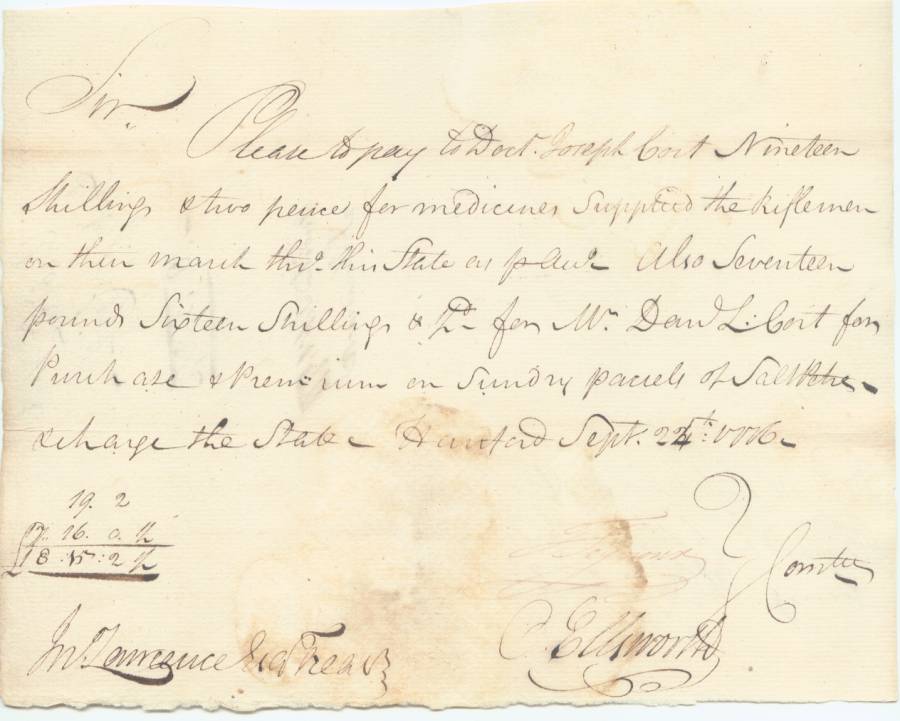 Sir,
Please to pay to Doct. Joseph Coit Nineteen
Shillings & two pence for medicines Supplied the Riflemen
on their march thro. this State as p Acco. Also Seventeen
pounds Sixteen Shillings & ½d for Mr. Danl L: Coit for
Purchase & Premium on Sundry parcels of Salt Petre
& charge the State Hartford Sept. 24th: 1776
19. 2
17. 16. 0. ½
£18: 15: 2 ½
Comtee
O Ellsworth
Jno. Lawrence Treasr